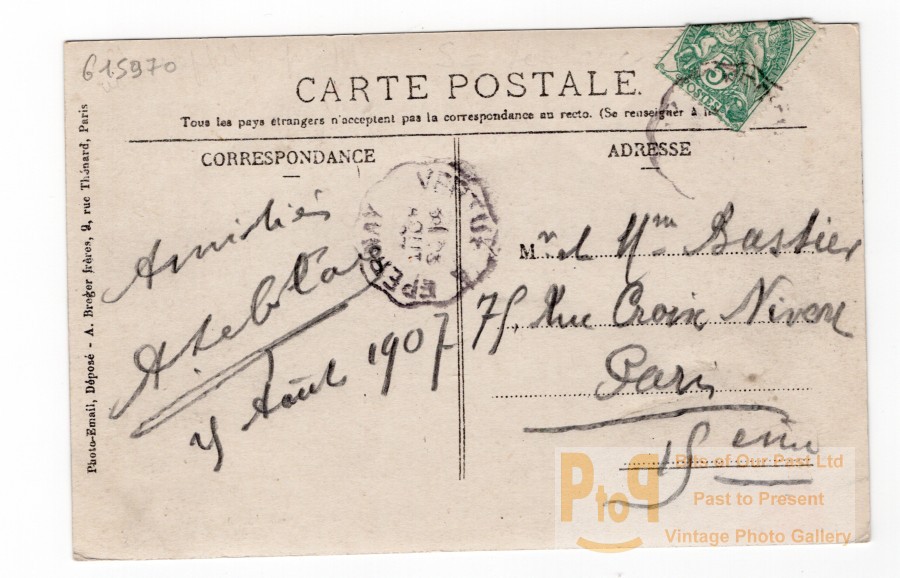 615970
CARTE POSTALE.
Tous les pays étrangers n'acceptent pas la correspondance au recto. (Se renseigner à
CORRESPONDANCE
ADRESSE
Photo-Email, Déposé - A. Breger frères, 9, rue Thénard, Paris
5
POSTES
VERTUS A
EPERNAY
Amitiés
Août 1907
Mr et Mme Bastier
75, Rue Croix Nivert
Paris
15eme
Bits of Our Past Ltd
PtoP
Past to Present
Vintage Photo Gallery